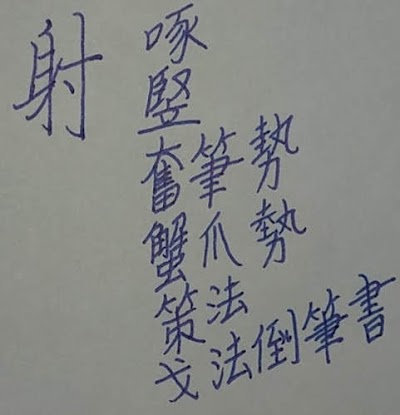 射
啄
竪
奮筆勢
蟹爪勢
策法
戈法倒筆書